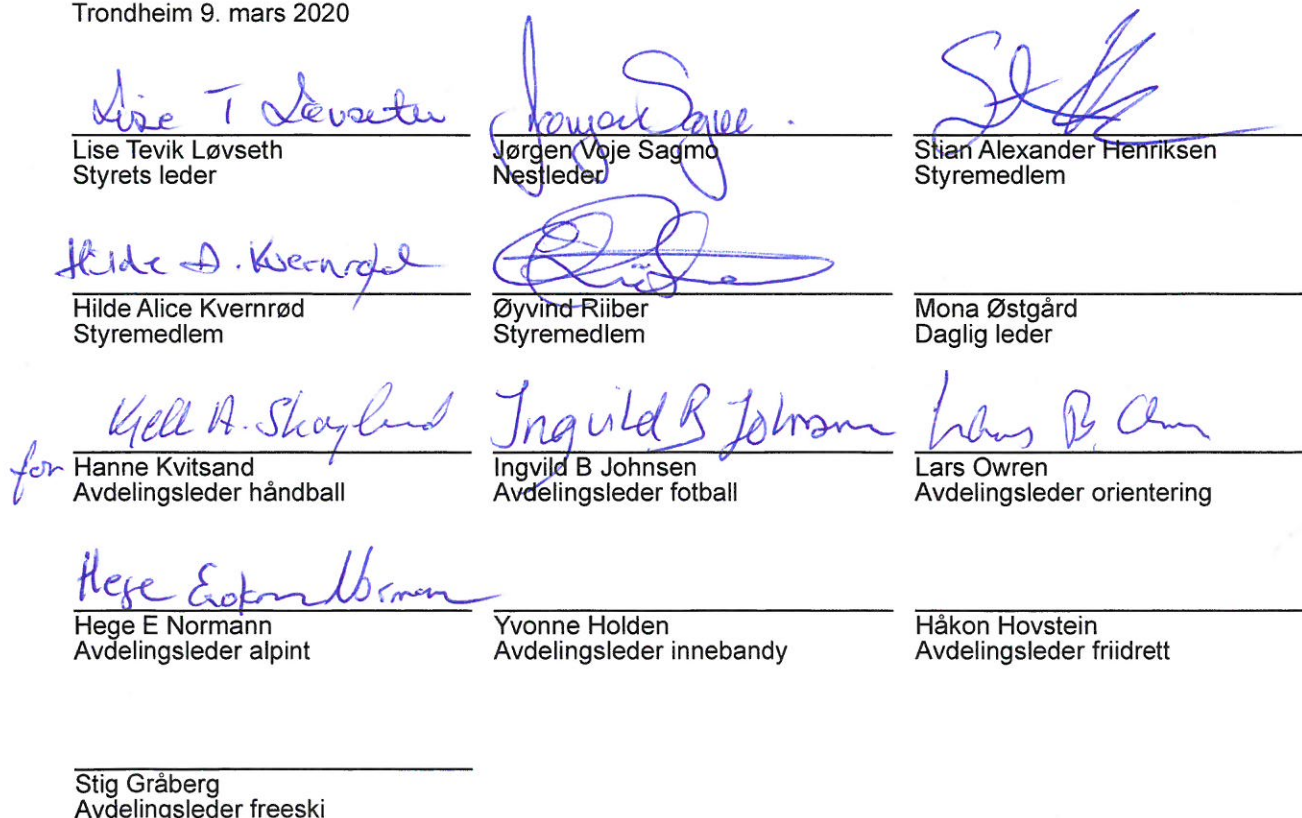 Trondheim 9. mars 2020
Lise T Løvseth
Lise Tevik Løvseth
Styrets leder
Jørgen Voje Sagmo
Nestleder
Stian Alexander Henriksen
Styremedlem
Hilde A. Kvernrød
Hilde Alice Kvernrød
Styremedlem
Øyvind Riiber
Styremedlem
Mona Østgård
Daglig leder
Kjell A. Skoglund
for Hanne Kvitsand
Avdelingsleder håndball
Ingvild B Johnsen
Ingvild B Johnsen
Avdelingsleder fotball
Lars Owren
Avdelingsleder orientering
Hege E Normann
Avdelingsleder alpint
Yvonne Holden
Avdelingsleder innebandy
Håkon Hovstein
Avdelingsleder friidrett
Stig Gråberg
Avdelingsleder freeski